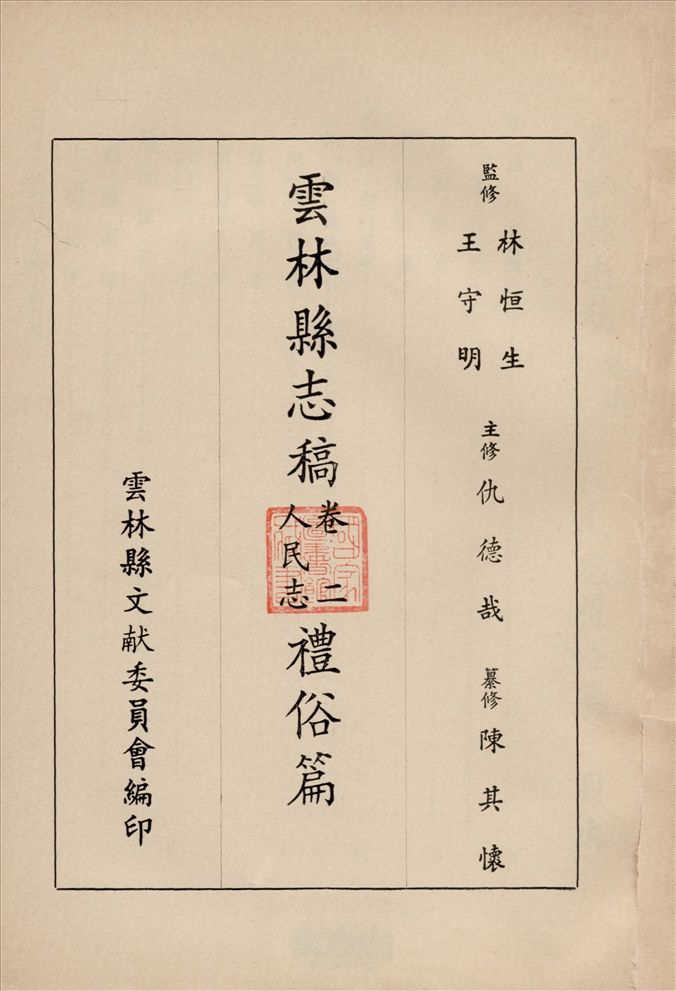 監修 林恒生
王守明
主修 仇德哉
纂修 陳其懷
雲林縣志稿 卷二 人民志 禮俗篇
雲林縣文献委員會編印